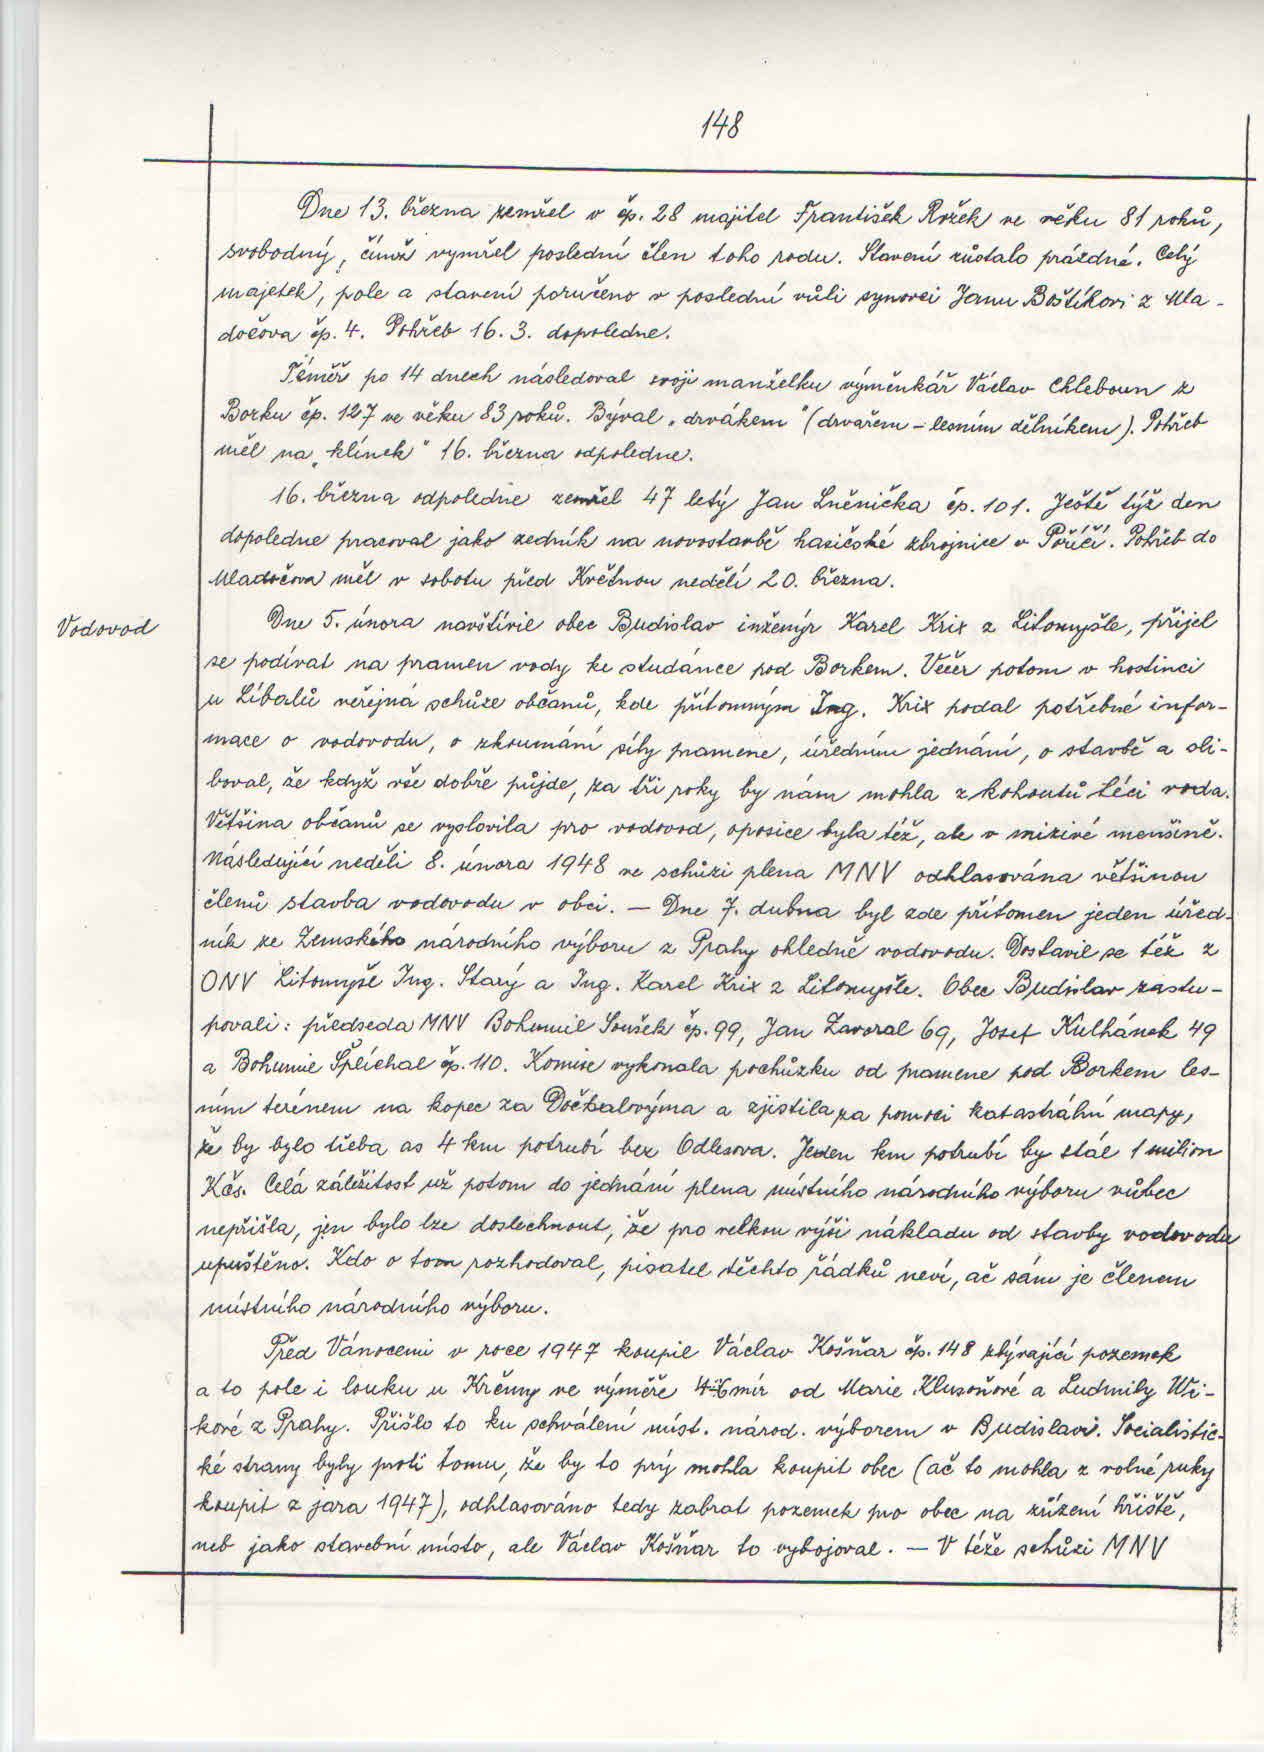 148
Dne 13. března zemřel v čp. 28 majitel František Rožek ve věku 81 roků,
svobodný, čímž vymřel poslední člen toho rodu. Stavení zůstalo prázdné. Celý
majetek, pole a stavení poručeno v poslední vůli synovci Janu Boštíkovi z Mla-
dočova čp. 4. Pohřeb 16. 3. dopoledne.
Téměř po 14 dnech následoval svoji manželku výměnkář Václav Chleboun z
Borku čp. 127 ve věku 83 roků. Býval „drvákem“ (drvařem – lesním dělníkem). Pohřeb
měl na „klínek“ 16. března odpoledne.
16. března odpoledne zemřel 47 letý Jan Lněnička čp. 101. Ještě týž den
dopoledne pracoval jako zedník na novostavbě hasičské zbrojnice v Poříčí. Pohřeb do
Mladočova měl v sobotu před Květnou nedělí 20. března.
Vodovod
Dne 5. února navštívil obec Budislav inženýr Karel Krix z Litomyšle, přijel
se podívat na pramen vody ke studánce pod Borkem. Večer potom v hostinci
u Líbalů veřejná schůze občanů, kde přítomným Ing. Krix podal potřebné infor-
mace o vodovodu, o zkoumání síly pramene, úředním jednání, o stavbě a sli-
boval, že když vše dobře půjde, za tři roky by nám mohla z kohoutů téci voda.
Většina občanů se vyslovila pro vodovod, oposice byla též, ale v mizivé menšině.
Následující neděli 8. února 1948 ve schůzi plena MNV odhlasována většinou
členů stavba vodovodu v obci. – Dne 7. dubna byl zde přítomen jeden úřed-
ník ze Zemského národního výboru z Prahy ohledně vodovodu. Dostavil se též z
ONV Litomyšl Ing. Starý a Ing. Karel Krix z Litomyšle. Obec Budislav zastu-
povali: předseda MNV Bohumil Soušek čp. 99, Jan Zavoral 69, Josef Kulhánek 49
a Bohumil Šplíchal čp. 110. Komise vykonala pochůzku od pramene pod Borkem les-
ním terénem na kopec za Dočkalovýma a zjistila za pomoci katastrální mapy,
že by bylo třeba as 4 km potrubí bez Odlesova. Jeden km potrubí by stál 1 milion
Kčs. Celá záležitost už potom do jednání plena místního národního výboru vůbec
nepřišla, jen bylo lze doslechnout, že pro velkou výši nákladu od stavby vodovodu
upuštěno. Kdo o tom rozhodoval, pisatel těchto řádků neví, ač sám je členem
místního národního výboru.
Před Vánocemi v roce 1947 koupil Václav Košňar čp. 148 zbývající pozemek
a to pole i louku u Krčmy ve výměře mír od Marie Klusoňové a Ludmily Wi-
kové z Prahy. Přišlo to ku schválení míst. národ. výborem v Budislavi. Socialistic-
ké strany byly proti tomu, že by to prý mohla koupit obec (ač to mohla z volné ruky
koupit z jara 1947), odhlasováno tedy zabrat pozemek pro obec na zřízení hřiště,
neb jako stavební místo, ale Václav Košňar to vybojoval. – V téže schůzi MNV